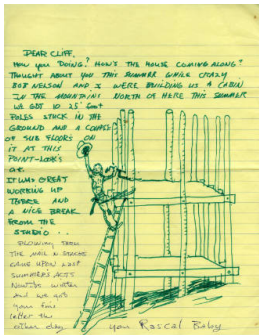 DEAR CLIFF,
HOW YOU DOING? HOW'S THE HOUSE COMING ALONG?
THOUGHT ABOUT YOU THIS SUMMER WHILE CRAZY
BOB NELSON AND I WERE BUILDING US A CABIN
IN THE MOUNTAINS NORTH OF HERE THIS SUMMER
WE GOT 10 25' foot
POLES STUCK IN THE
GROUND AND A COUPLE
OF SUB FLOORS ON
IT AT THIS
POINT-LOOK'S
O.K.
IT WAS GREAT
WORKING UP
THERE AND
A NICE BREAK
FROM THE
STUDIO...
THE MAIL
CAME UPON LAST
SUMMER'S
and we got
your fine
letter the
other day
your Rascal